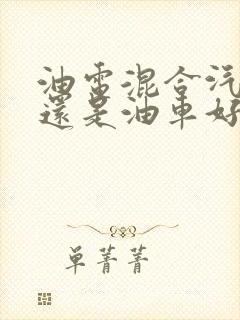 油電混合汽
還是油車好
单菁菁